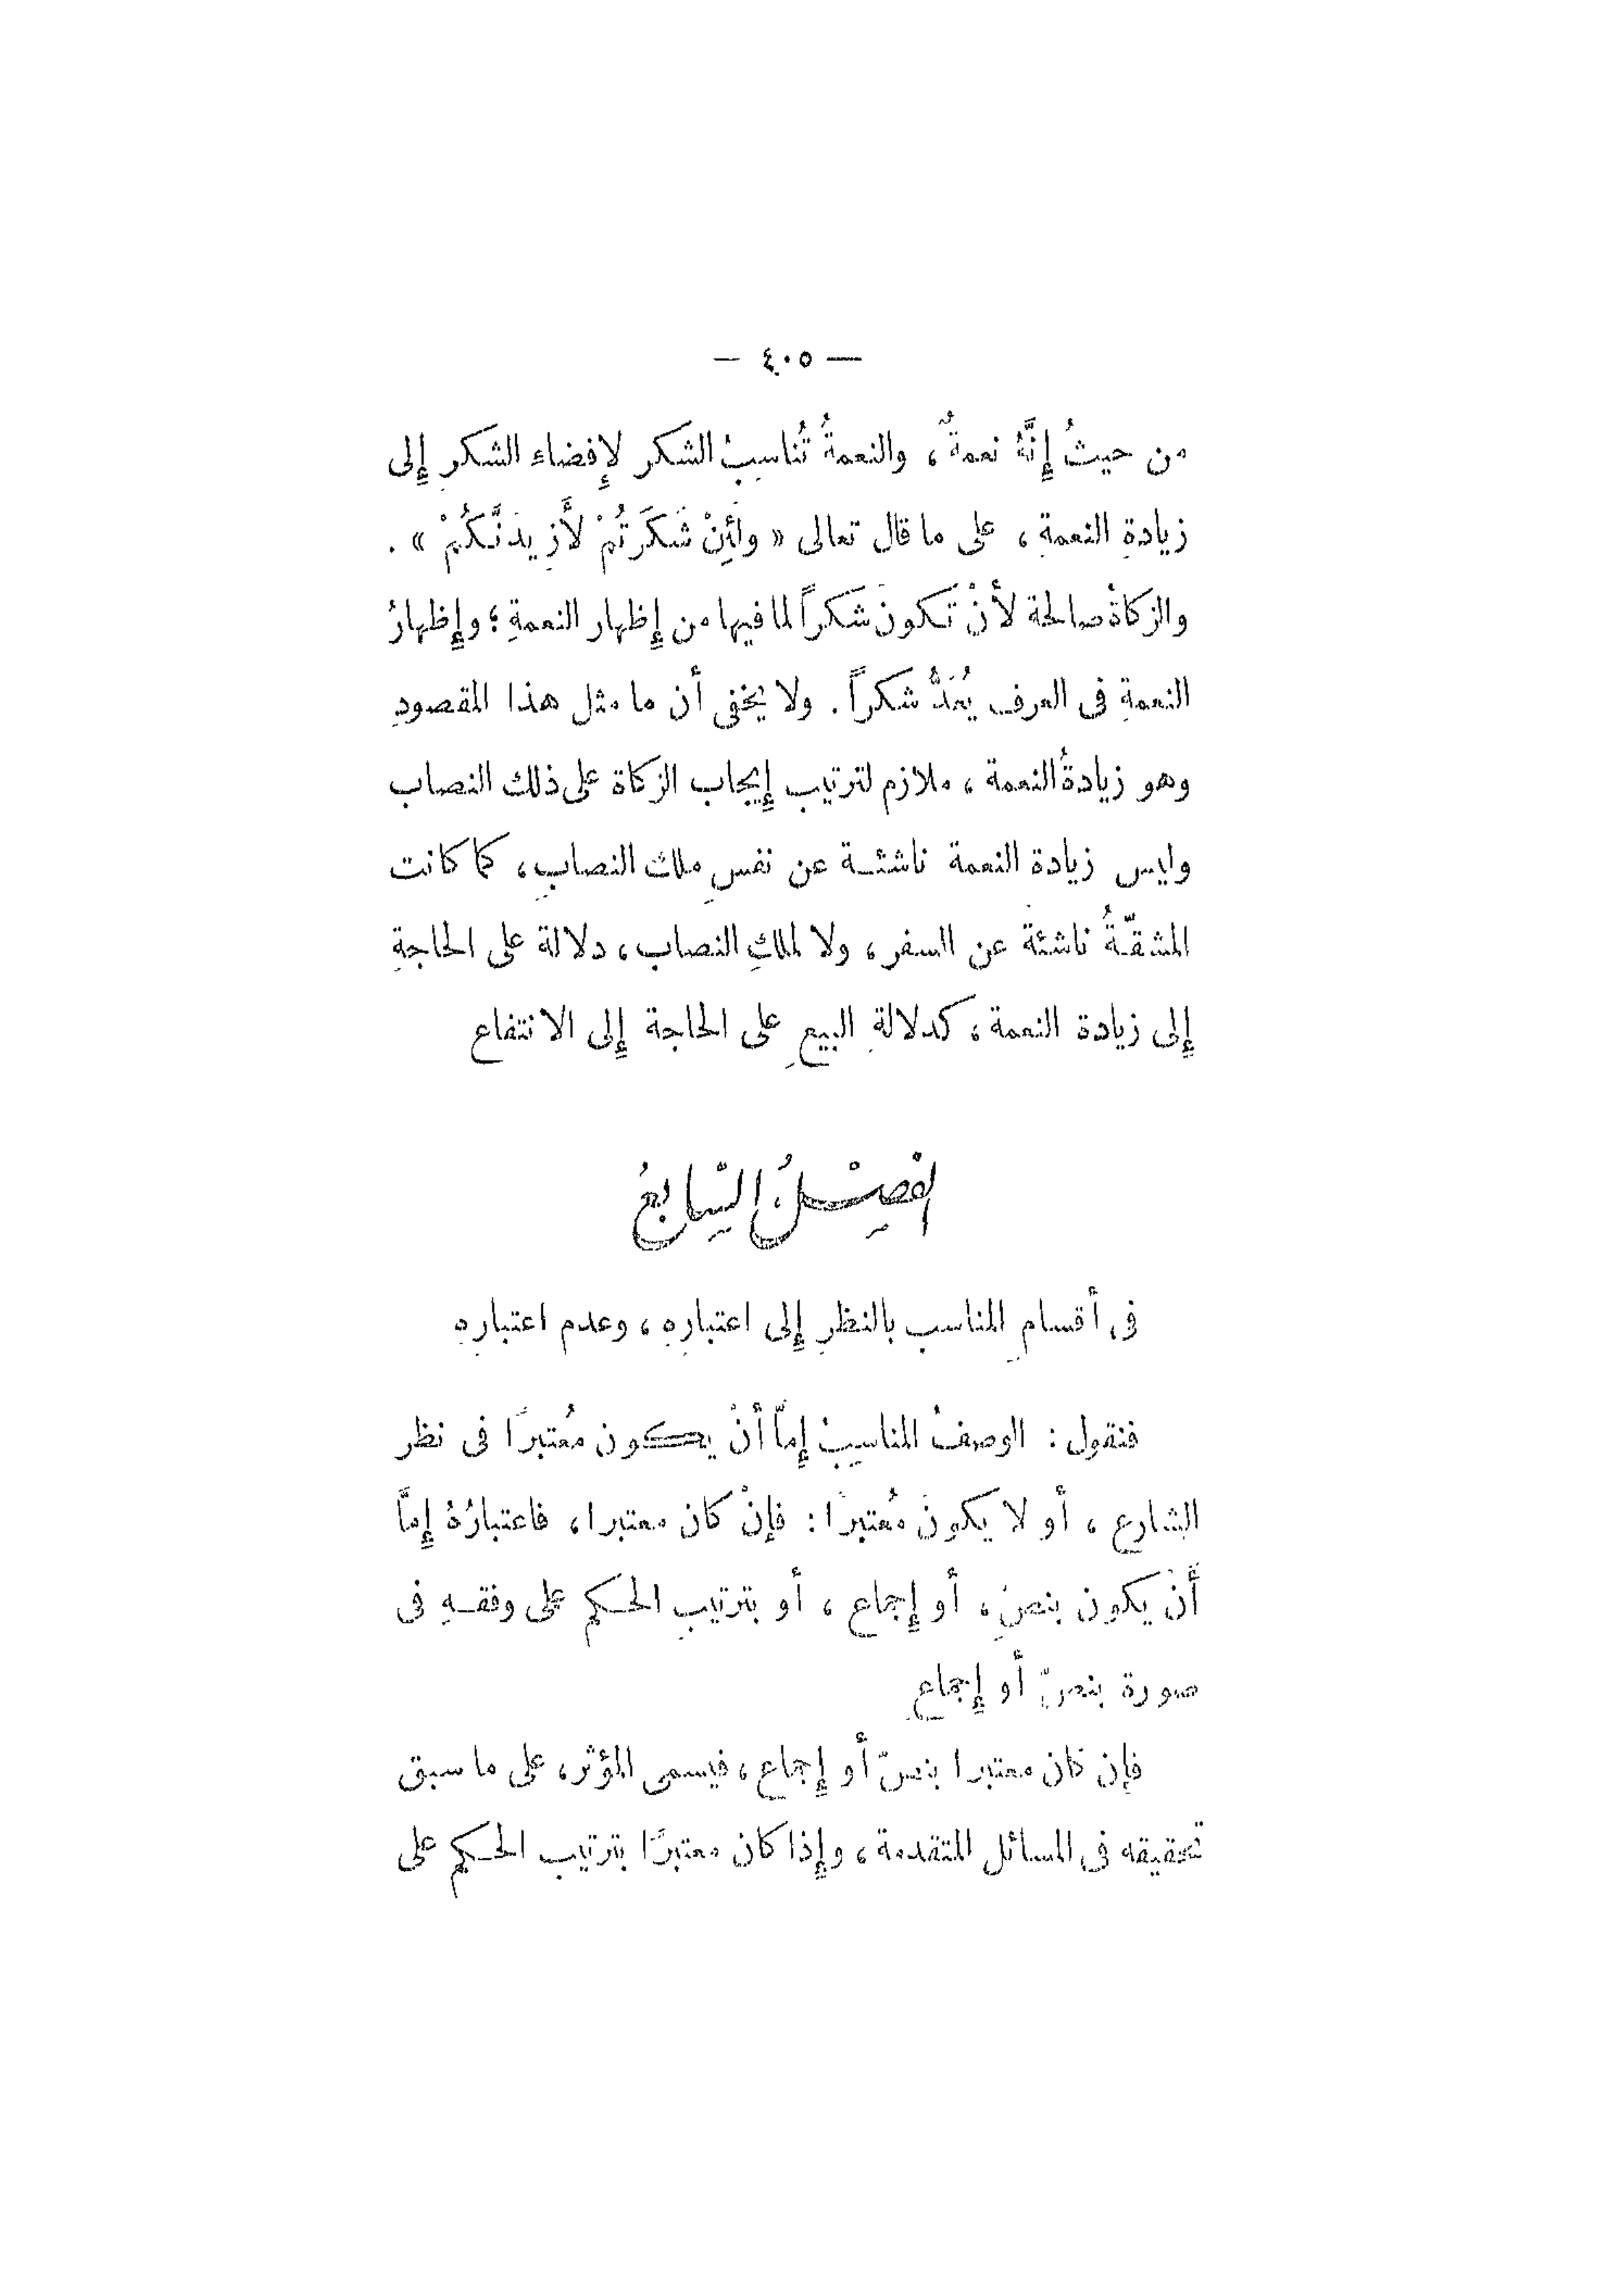 — ٤٠٥ —
من حيثُ إِنَّهُ نعمةٌ، والنعمةُ تُناسبُ الشكر لإِفضاء الشكر إِلى
زيادةِ النعمةِ، على ما قال تعالى « ولَئِنْ شَكَرَتُمْ لأَزِيدَنَّكُمْ ».
والزكاةُ صالحة لأنْ تَكونَ شكراً لما فيها من إِظهار النعمةِ؛ وإِظهارُ
النعمةِ فى العرف يُعَدُّ شكراً. ولا يخفى أن ما مثل هذا المقصودِ
وهو زيادةُ النعمة، ملازم لترتيب إِيجاب الزكاة على ذلك النصاب
وليس زيادة النعمة ناشئة عن نفسِ ملك النصابِ، كما كانت
المشقّةُ ناشئة عن السفر، ولا لملكِ النصاب، دلالة على الحاجةِ
إِلى زيادة النعمة، كدلالةِ البيعِ على الحاجة إِلى الانتفاع
الفصْلُ السَّابعُ
فى أقسامِ المناسب بالنظرِ إِلى اعتبارِهِ، وعدم اعتبارِهِ
فنقول: الوصفُ المناسبُ إِمّا أنْ يكون مُعتبرًا فى نظر
الشارع، أو لا يكونَ مُعتبرًا: فإنْ كان معتبرا، فاعتبارُهُ إِمَّا
أَنْ يكون بنصٍ، أو إِجماع، أو بترتيبِ الحكم على وفقهِ فى
صورة بنصّ أو إِجماعٍ
فإن كان معتبرا بنصّ أو إِجماع، فيسمى المؤثر، على ما سبق
تحقيقه فى المسائل المتقدمة، وإِذا كان معتبرًا بترتيب الحكم على